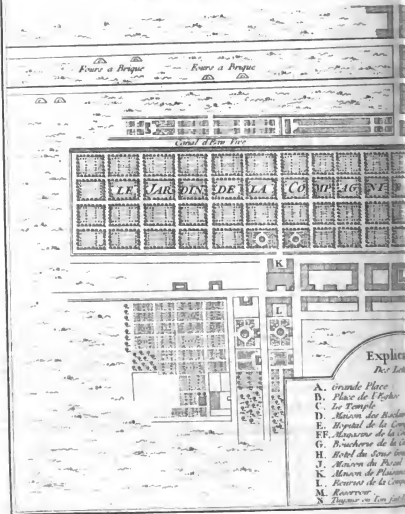 Fours a Brique Fours a Brique
Canal d'Eau Vive
LE JARDIN DE LA COMPAGNI
K
L
Explic
Des Let
A. Grande Place
B. Place de l'Eglise
C. Le Temple
D. Maison des
E. Hopital de la Com
FF. Magasins de la Co
G. Boucherie de la Co
H. Hotel du Sous Gou
J. Maison du Fiscal
K. Maison de Plaisance
L. Ecuries de la Compa
M. Reservoir
N. Tuyaux ou l'on fait